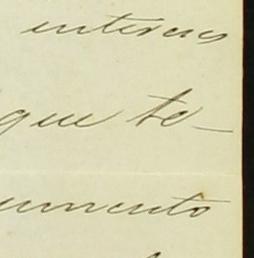 interes
que te-
umento